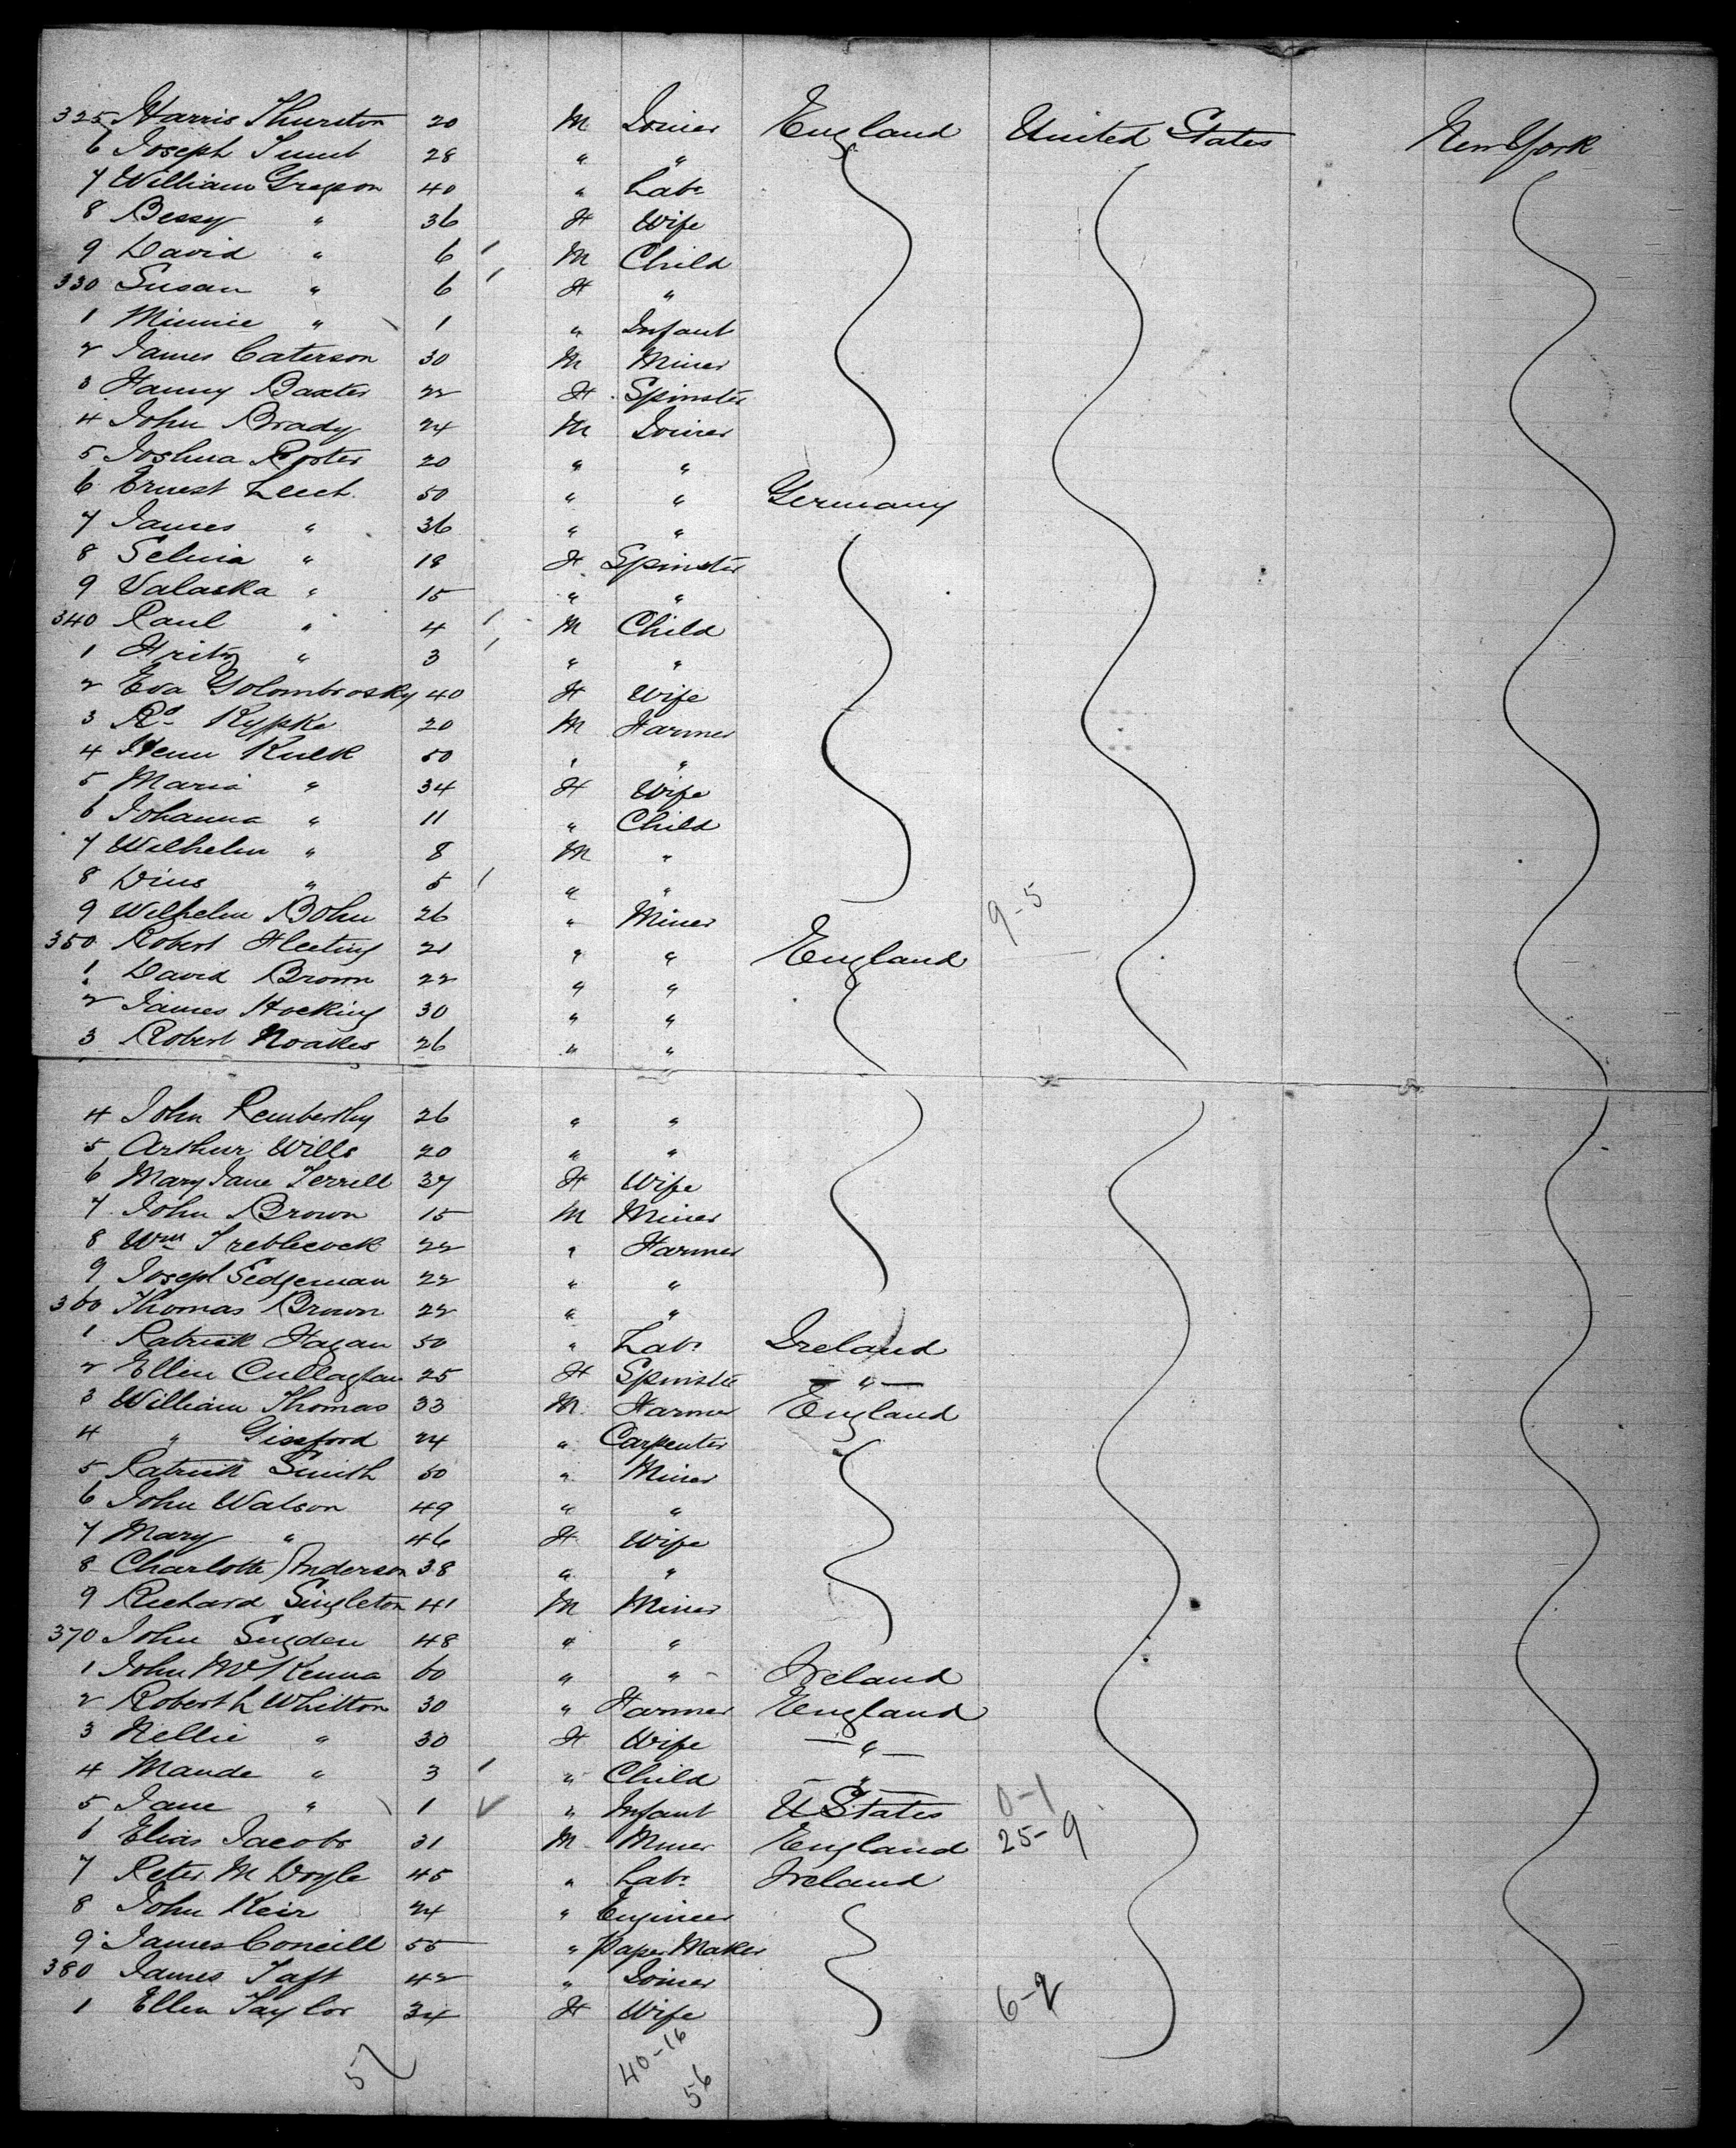 325 Harris Thurston 20 M Joiner England United States New York
6 Joseph 28 " "
7 William Gregson 40 " Labr
8 Bessy " 36 F Wife
9 David " 6 M Child
330 Susan " 6 F "
1 Minnie " 1 " Infant
2 James Caterson 30 M Miner
3 Fanny Baxter 22 F Spinster
4 John Brady 24 M Joiner
5 Joshua 20 " "
6 Ernest Leech 50 " " Germany
7 James " 36 " "
8 Selma " 18 F Spinster
9 Valaska " 15 " "
340 Paul " 4 M Child
1 Fritz " 3 " "
2 Eva Golombrosky 40 F Wife
3 Rd Kypke 20 M Farmer
4 Kulk 50 " "
5 Maria " 34 F Wife
6 Johanna " 11 " Child
7 Wilhelm " 8 M "
8 " 5 " "
9 Wilhelm Bohn 26 " Miner 9-5
350 Robert 21 " " England
1 David Brown 22 " "
2 James Hocking 30 " "
3 Robert Noakes 26 " "
4 John 26 " "
5 Arthur Wills 20 " "
6 Mary Jane Terrell 37 F Wife
7 John Brown 15 M Miner
8 Wm Treblecock 22 " Farmer
9 Joseph Sedgeman 22 " "
360 Thomas Brown 22 " "
1 Patrick Fagan 50 " Labr Ireland
2 Ellen Cullaghan 25 F Spinster "
3 William Thomas 33 M Farmer England
4 " Gissford 24 " Carpenter
5 Patrick Smith 50 " Miner
6 John Watson 49 " "
7 Mary " 46 F Wife
8 Charlotte Anderson 38 " "
9 Richard Singleton 41 M Miner
370 John Sugden 48 " "
1 John McKenna 60 " " Ireland
2 Robert L Whitton 30 " Farmer England
3 Nellie " 30 F Wife "
4 Maude " 3 " Child "
5 Jane " 1 " Infant U States 0-1
6 Elias Jacobs 31 M Miner England 25-9
7 Peter M Doyle 45 " Labr Ireland
8 John Keir 24 " Engineer
9 James Coneill 55 " Paper Maker
380 James Taft 42 " Joiner
1 Ellen Taylor 34 F Wife 6-2
57 40-16
56